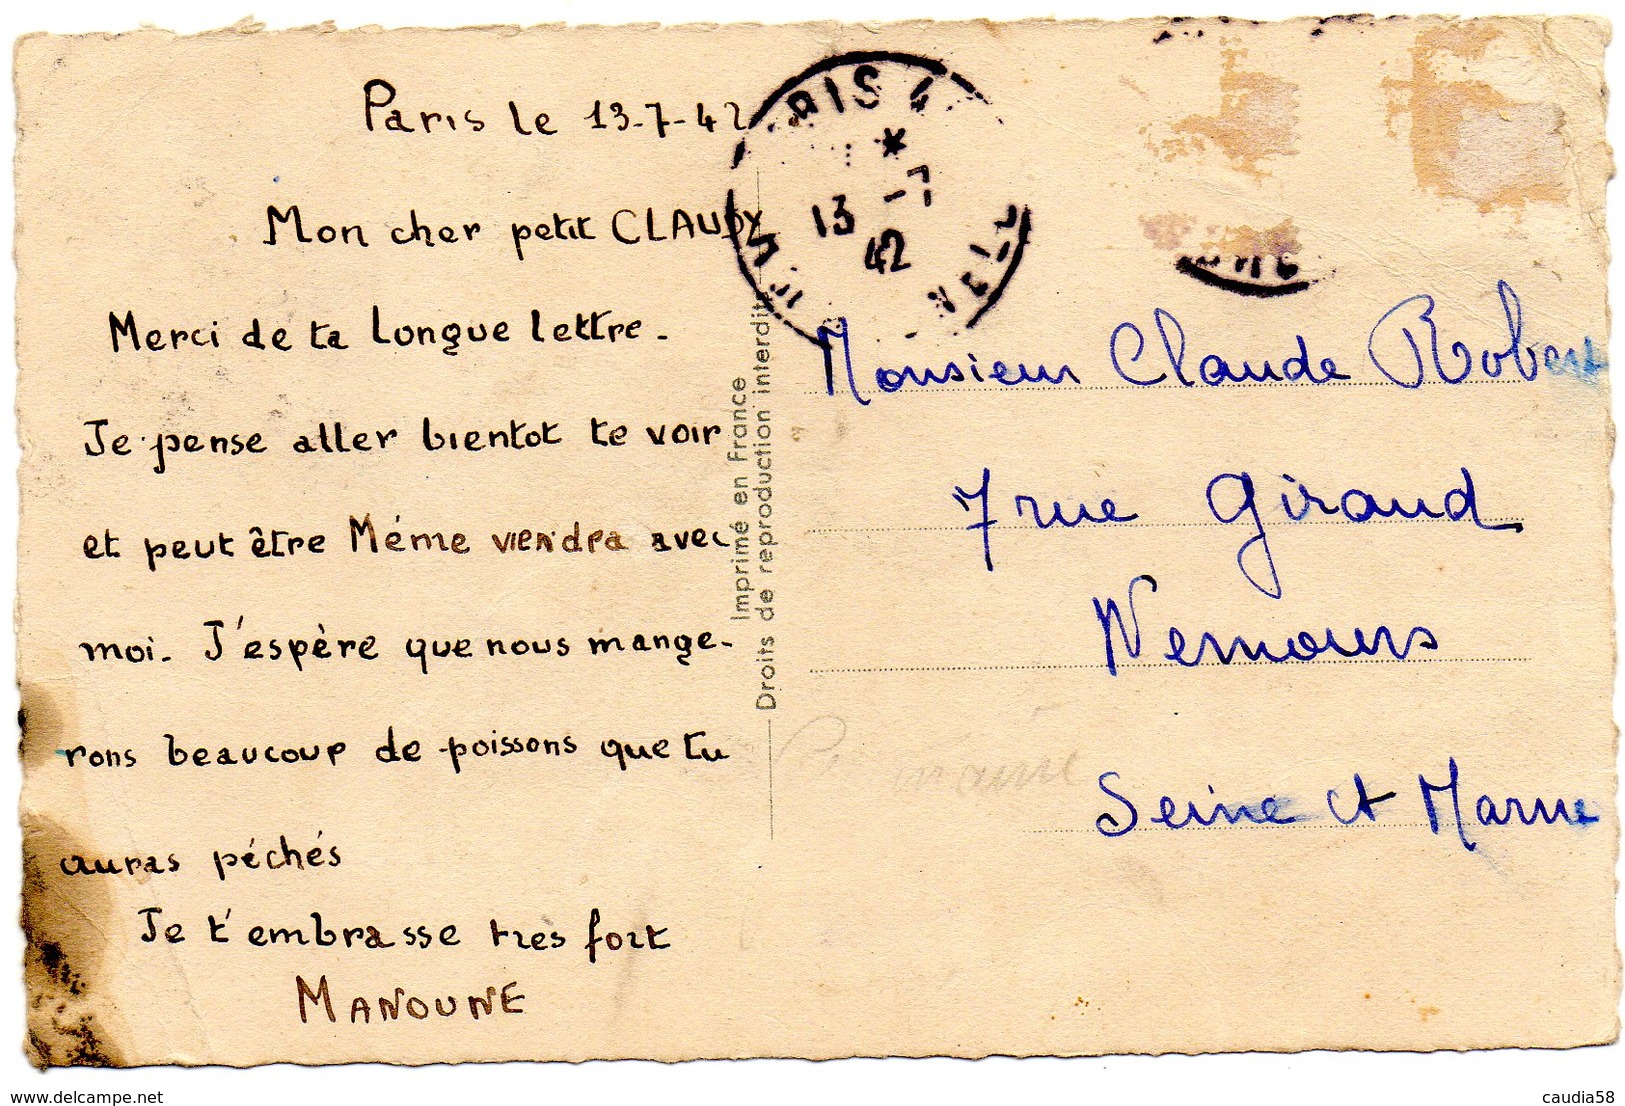 Paris le 13-7-42
Mon cher petit CLAUDY
Merci de ta longue lettre.
Je pense aller bientot te voir
et peut être Méme viendra avec
moi. J'espère que nous mange-
rons beaucoup de poissons que tu
auras péchés
Je t'embrasse très fort
MANOUNE
Imprimé en France
Droits de reproduction interdits
13 -7
42
Monsieur Claude Robert
7 rue Giraud
Nemours
Seine et Marne
delcampe.net
caudia58